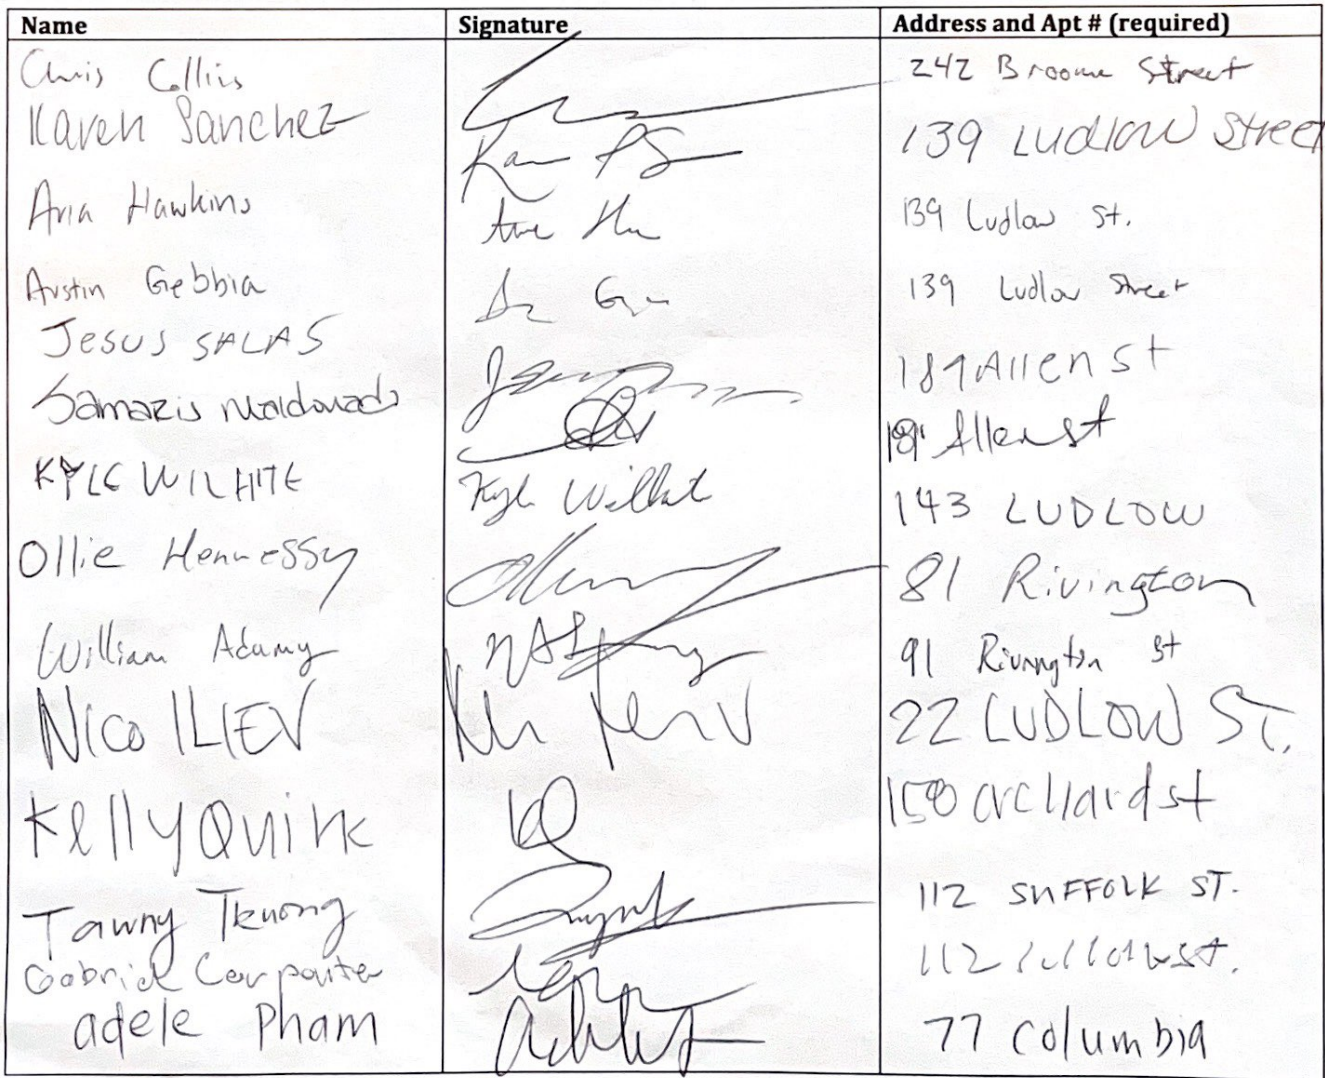 Name Signature Address and Apt # (required)
Chris Collins 242 Broome Street
Karen Sanchez 139 Ludlow Street
Aria Hawkins 139 Ludlow St.
Austin Gebbia 139 Ludlow Street
Jesus SALAS Allen St
Samazis Maldonado Allen st
KYLE WILHITE Kyle Wilhite 143 LUDLOW
Ollie Hennessy 81 Rivington
William Adamy 91 Rivington St
NICO ILIEV 22 LUDLOW ST.
Kelly Quirk KQ 150 orchard st
Tawny Truong 112 SUFFOLK ST.
Gabriel Carpenter 112 st.
adele Pham 77 Columbia